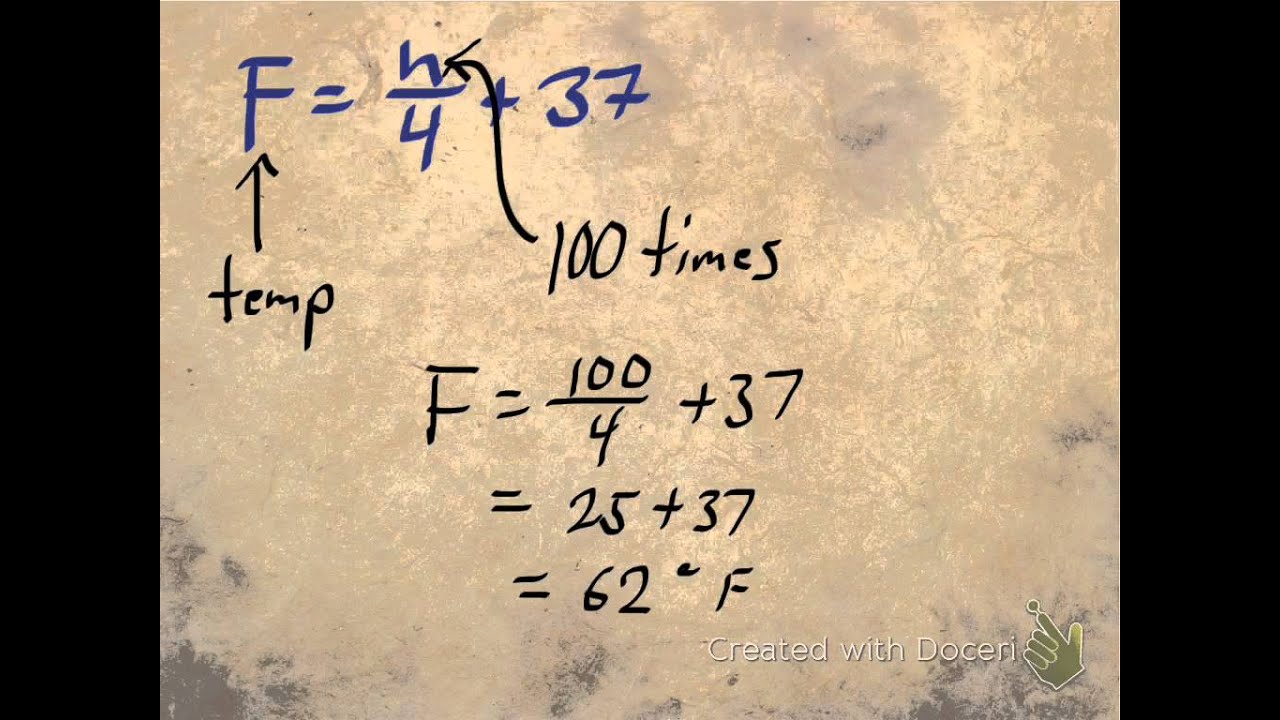 F = n/4 + 37
100 times
temp
F = 100/4 + 37
= 25 + 37
= 62° F
Created with Doceri